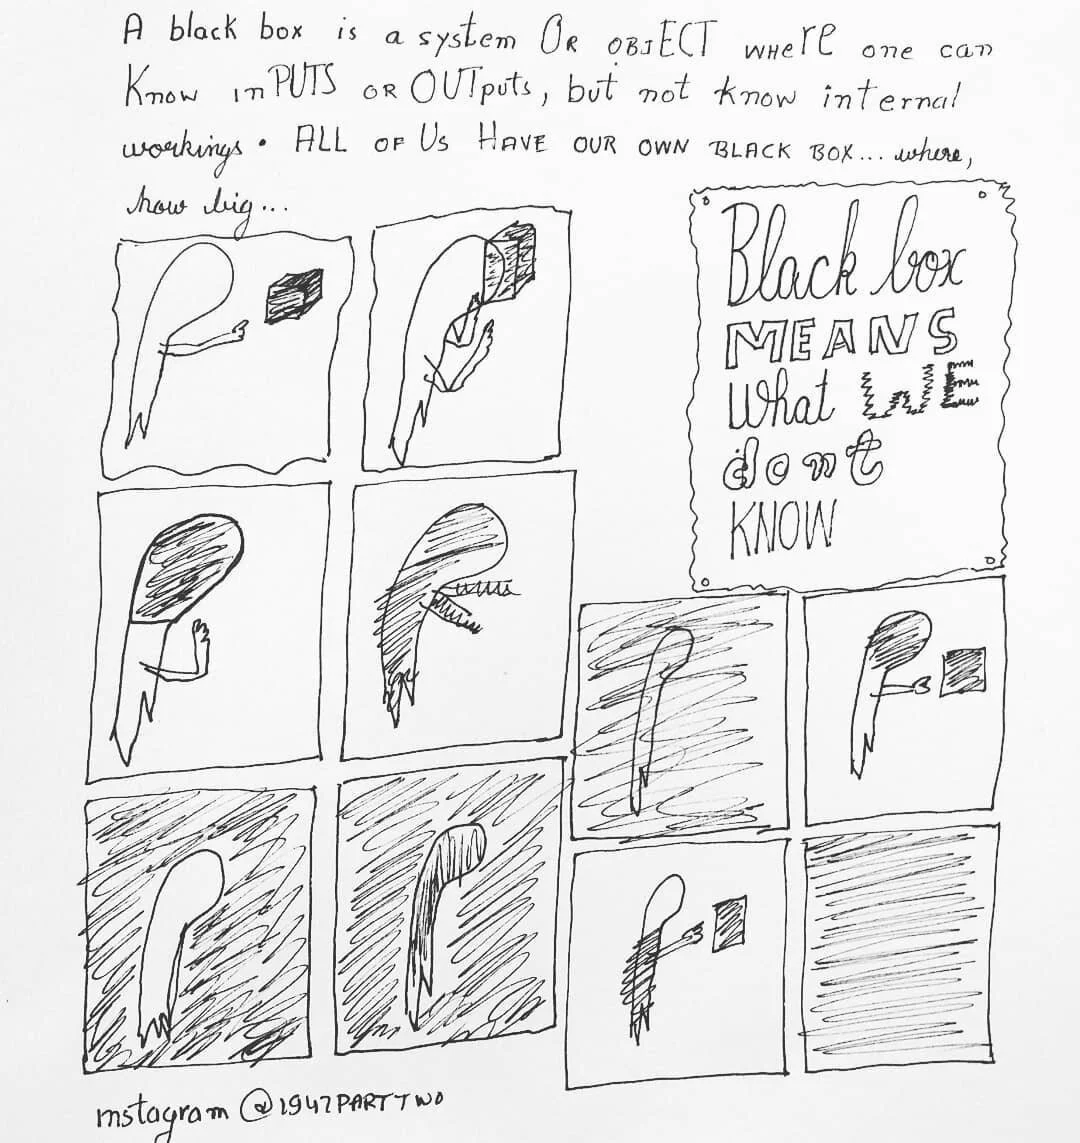 A black box is a system OR OBJECT WHERE one can
Know inPUTS OR OUTputs, but not know internal
workings. ALL OF US HAVE OUR OWN BLACK BOX... where,
how big...
Black box
MEANS
What WE
dont
KNOW
Instagram @1947PARTTWO